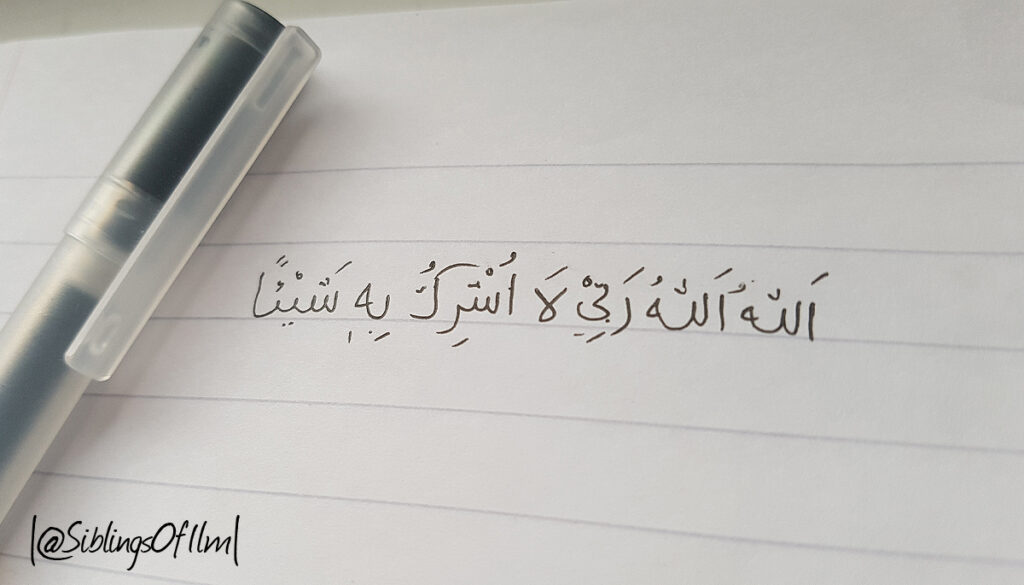 اَللّٰهُ اَللّٰهُ رَبِّيْ لَا اُشْرِكُ بِهٖ شَيْئًا
|@SiblingsOfIlm|